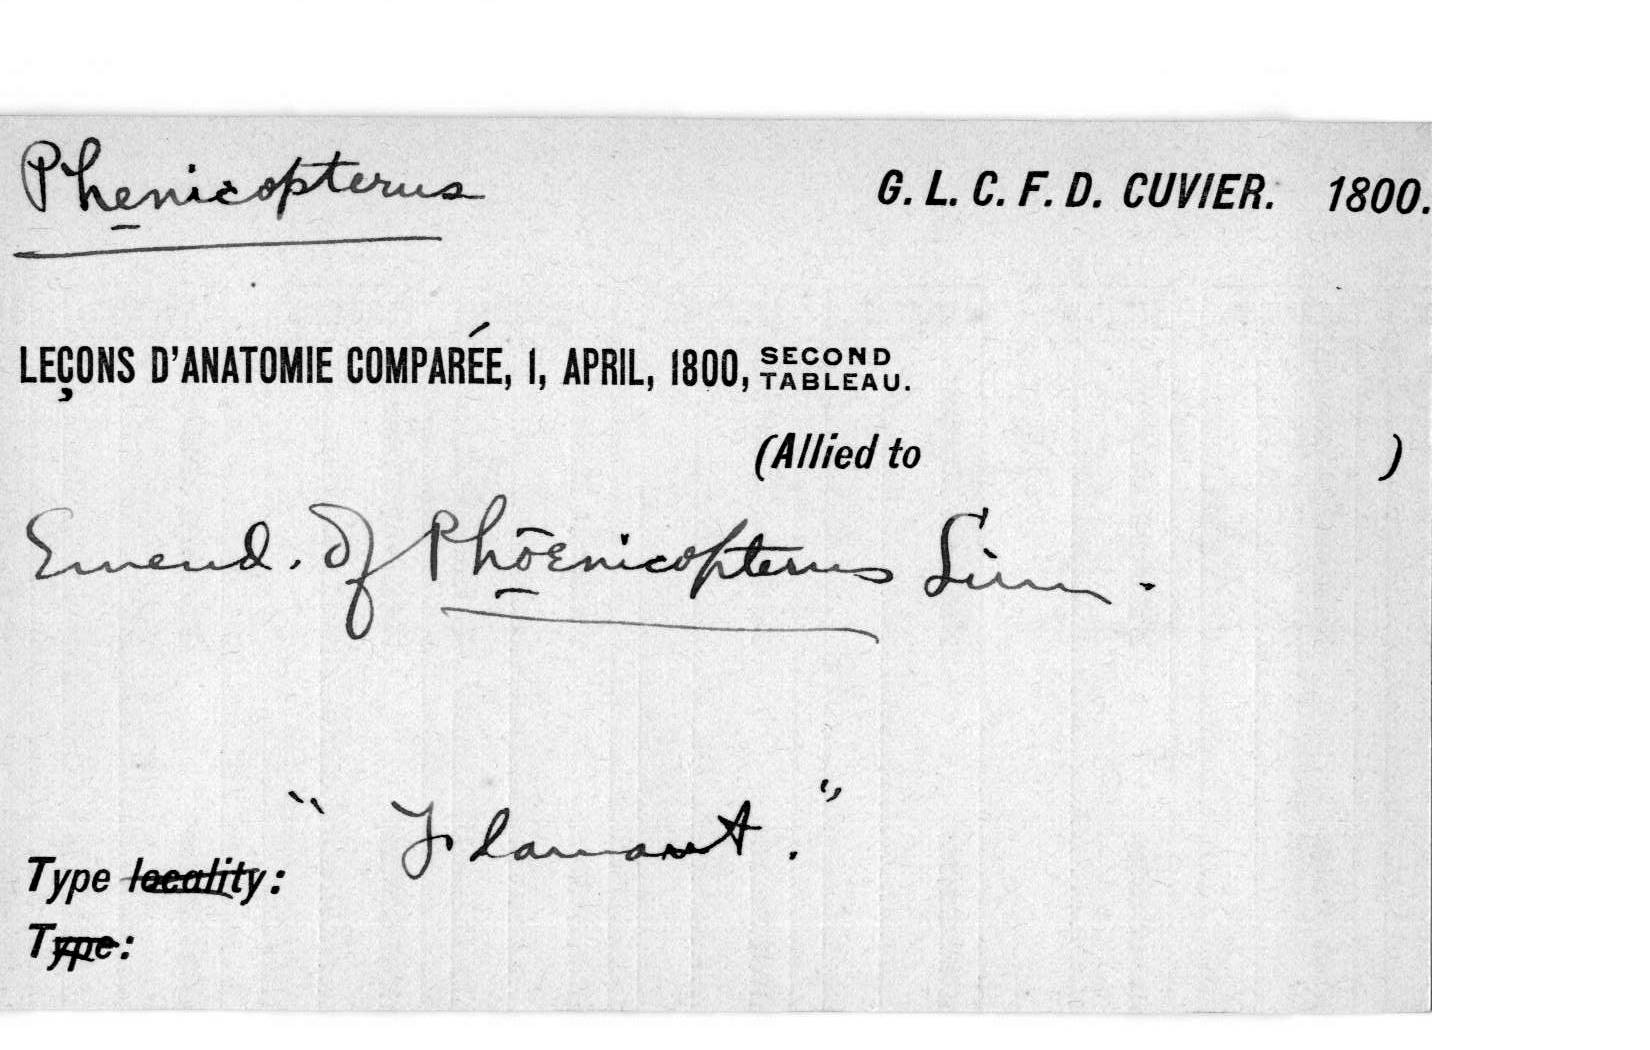 Phenicopterus G. L. C. F. D. CUVIER. 1800.
LEÇONS D'ANATOMIE COMPARÉE, 1, APRIL, 1800, SECOND TABLEAU.
(Allied to )
Emend. of Phōenicopterus Linn.
"Flamant."
Type locality:
Type: